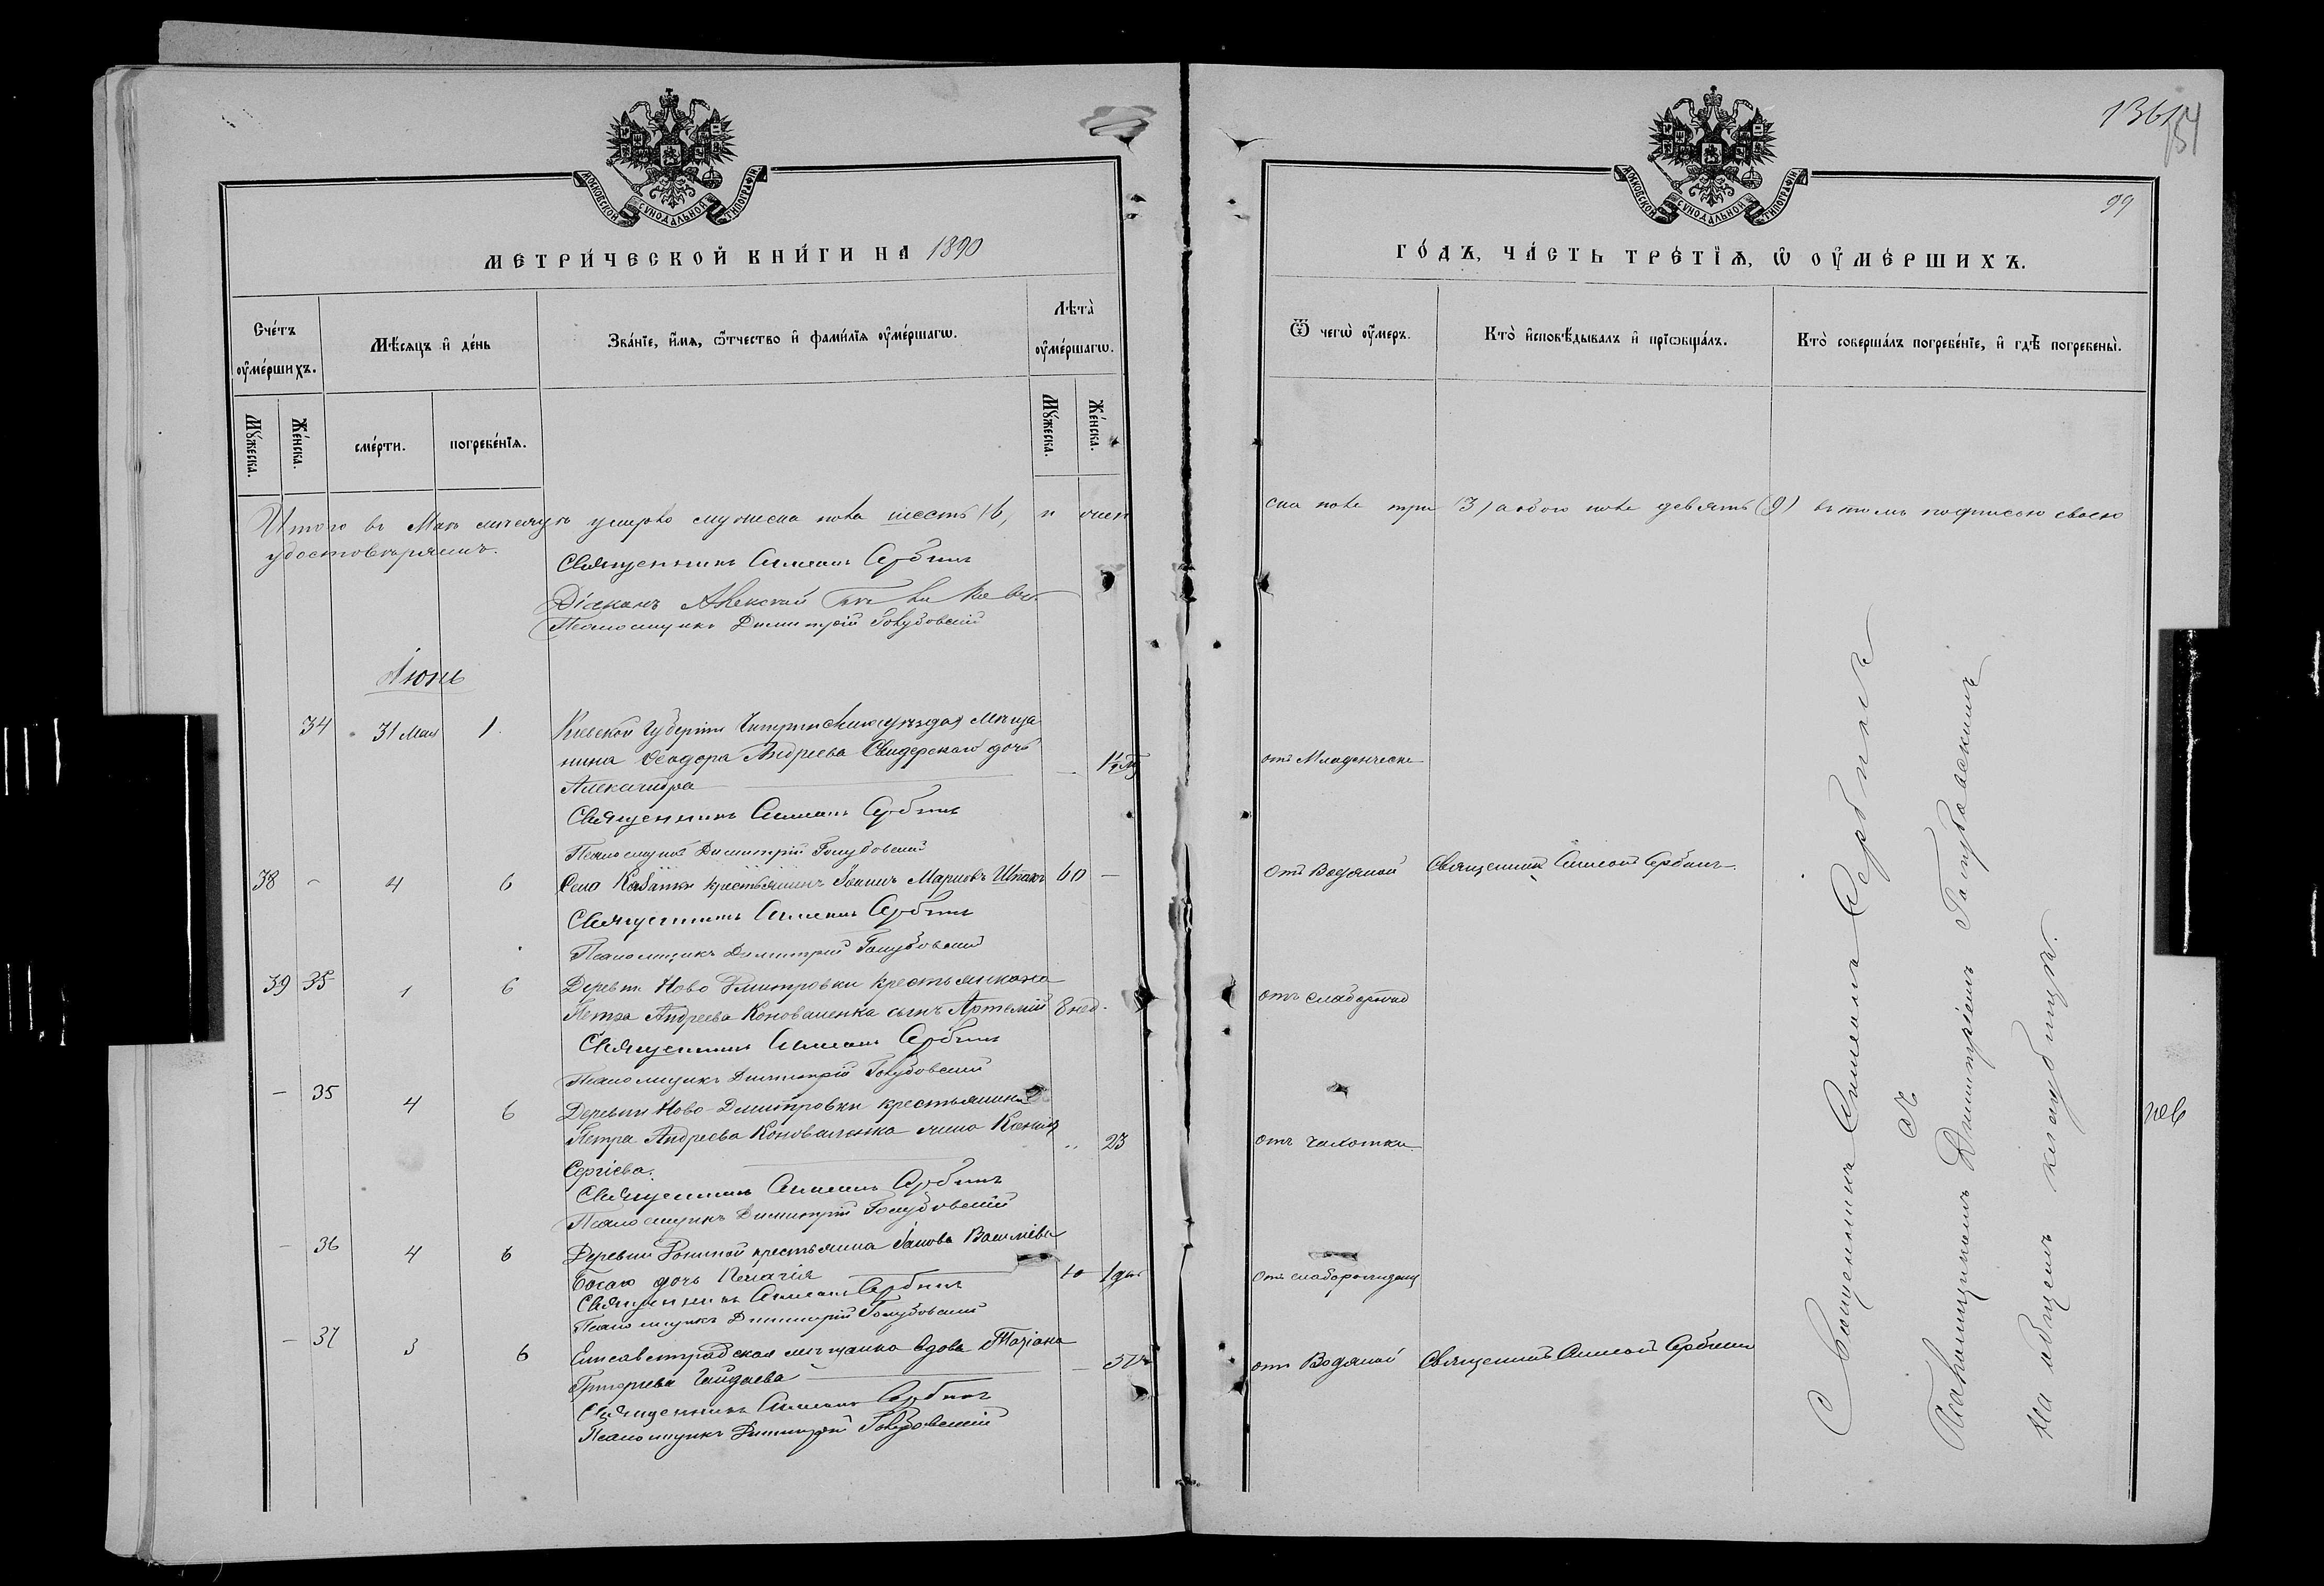 МОСКОВСКОЙ СѴНОДАЛЬНОЙ ТИПОГРАФІИ
МЕТРИ́ЧЕСКОЙ КНИ́ГИ НА 1890
Сче́тъ оу҆ме́ршихъ.
Мѣ́сяцъ и҆ де́нь
Зва́нїе, и҆́мѧ, ѻ҆́тчество и҆ фами́лїѧ оу҆ме́ршагѡ.
Лѣта̀ оу҆ме́ршагѡ.
Мꙋ́жеска.
Же́нска.
сме́рти.
погребе́нїѧ.
Мꙋ́жеска.
Же́нска.
Итого въ Маѣ мѣсяцѣ умерло мужеска пола шесть (6, и жен
удостовѣряемъ.
Священникъ Симеонъ Сербинъ
Діаконъ Алексѣй
Псаломщикъ Димитрій Голубовскій
Іюнь
34 31 Мая 1
Кіевской Губерніи Чигринскаго уѣзда мѣща
нина Ѳеодора Андреева Свидерскаго дочь
Александра
Священникъ Симеонъ Сербинъ
Псаломщикъ Димитрій Голубовскій
38 – 4 6 Села крестьянинъ Іоаннъ Марковъ Шпакъ 60 –
Священникъ Симеонъ Сербинъ
Псаломщикъ Димитрій Голубовскій
39 35 1 6 Деревни Ново Дмитровки крестьянина
Петра Андреева Коноваленка сынъ Артемій 8 нед.
Священникъ Симеонъ Сербинъ
Псаломщикъ Димитрій Голубовскій
– 35 4 6 Деревни Ново-Дмитровки крестьянина
Петра Андреева Коноваленка жена Ксенія 23
Сергіева.
Священникъ Симеонъ Сербинъ
Псаломщикъ Димитрій Голубовскій
– 36 4 6 Деревни крестьянина Іакова Василіева
дочь Пелагія 1 дн.
Священникъ Симеонъ Сербинъ
Псаломщикъ Димитрій Голубовскій
– 37 3 6 Елисаветградская мѣщанка вдова Татіана
Григорьева Гайдаева
Священникъ Симеонъ Сербинъ
Псаломщикъ Димитрій Голубовскій
МОСКОВСКОЙ СѴНОДАЛЬНОЙ ТИПОГРАФІИ
99
ГО́ДЪ, ЧА́СТЬ ТРЕ́ТЇѦ, Ѡ҆ ОУ҆МЕ́РШИХЪ.
Ѿ чегѡ̀ оу҆́меръ.
Кто̀ и҆сповѣ́дывалъ и҆ прїѡбща́лъ.
Кто̀ соверша́лъ погребе́нїе, и҆ гдѣ̀ погребены̀.
ска пола три (3) а обоего пола девять (9) въ томъ подписью своею
отъ Младенческ
отъ Водяной Священникъ Симеонъ Сербинъ
отъ слаборожд
отъ чахотки
отъ слаборожденія
отъ Водяной Священникъ Симеонъ Сербинъ
Священникъ Симеонъ Сербинъ
съ
Псаломщикомъ Димитріемъ Голубовскимъ
на общемъ кладбищѣ.